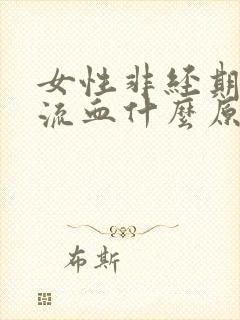 女性非经期
流血什麼原
布斯